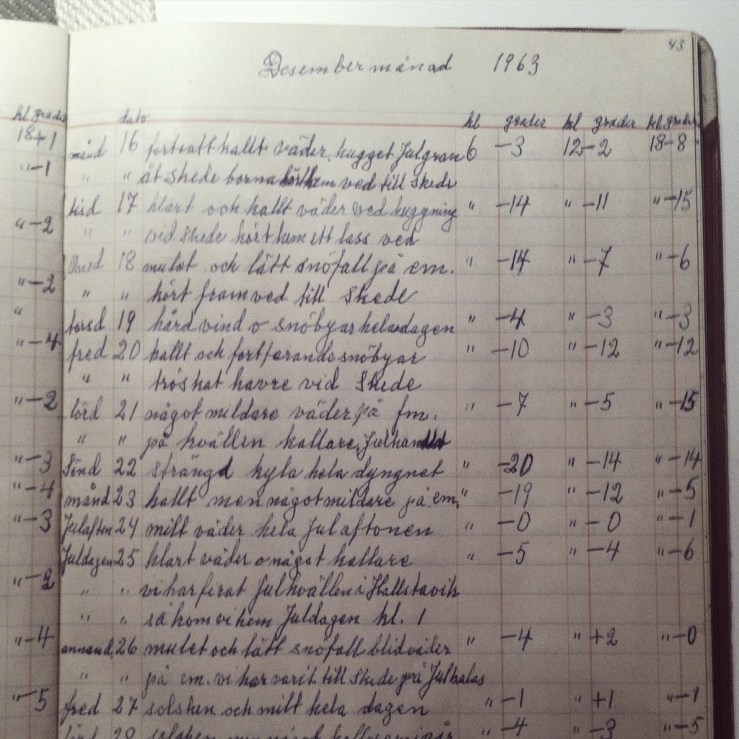 43
Desember månad 1963
kl grader dato kl grader kl grader kl grader
18 +1 månd 16 fortsatt kallt väder. hugget Julgran 6 -3 12 -2 18 -8
" -1 " " åt Skede borna kört hem ved till Skede
tisd 17 klart och kallt väder ved huggning " -14 " -11 " -15
" -2 " " vid Skede kört hem ett lass ved
Onsd 18 mulet och lätt snöfall på em. " -14 " -7 " -6
" -2 " " kört fram ved till Skede
" torsd 19 hård vind o snöbyar hela dagen " -4 " -3 " -3
" -4 fred 20 kallt och fortfarande snöbyar " -10 " -12 " -12
" " tröskat havre vid Skede
" -2 lörd 21 något mildare väder på fm. " -7 " -5 " -15
" " på kvällen kallare,
" -3 Sönd 22 strängd kyla hela dyngnet " -20 " -14 " -14
" -4 månd 23 kallt men något mildare på em, " -19 " -12 " -5
" -3 Julafton 24 milt väder hela Julaftonen " -0 " -0 " -1
Juldagen 25 klart väder o något kallare " -5 " -4 " -6
" -2 " " vi har firat Julkvällen i Hallstavik
" " så kom vi hem Juldagen kl. 1
" -4 annand. 26 mulet och lätt snöfall blidväder " -4 " +2 " -0
" " på em. vi har varit till Skede på Julkalas
" -5 fred 27 solsken och milt hela dagen " -1 " +1 " -1
lörd 28 solsken " -4 " -3 " -5